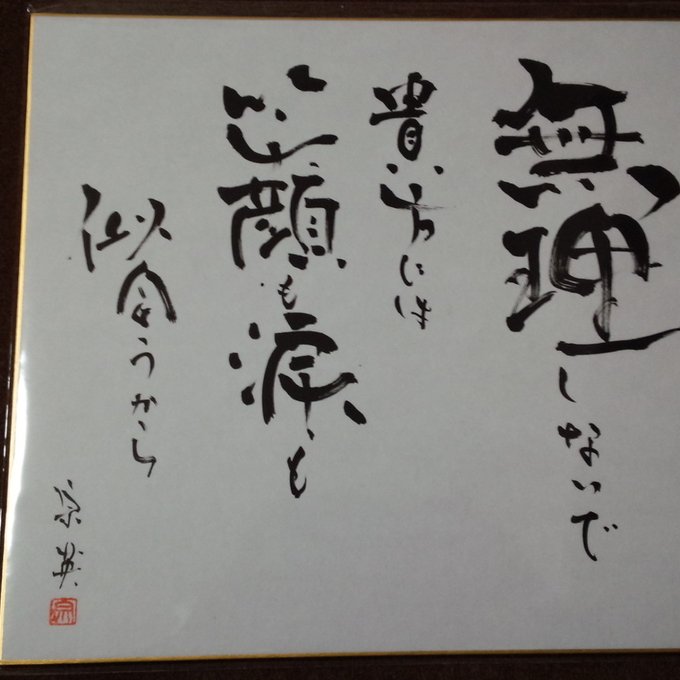 無理しないで
貴方には
笑顔も涙も
似合うから